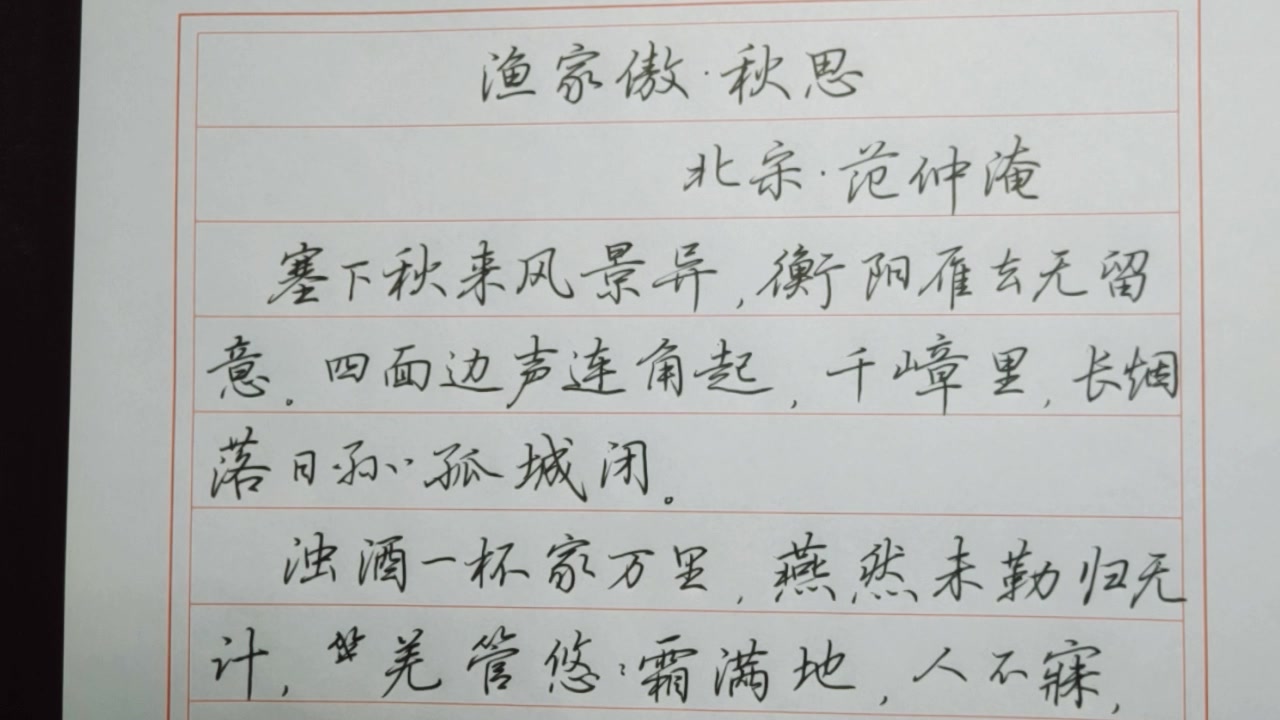 渔家傲·秋思
北宋·范仲淹
塞下秋来风景异,衡阳雁去无留
意。四面边声连角起,千嶂里,长烟
落日孤城闭。
浊酒一杯家万里,燕然未勒归无
计,羌管悠悠霜满地,人不寐,